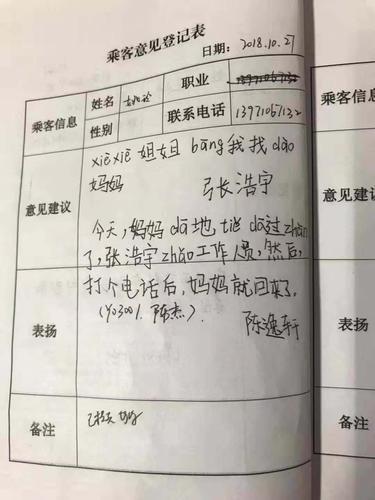 乘客意见登记表
日期: 2018.10.27
乘客信息 姓名 职业
性别 联系电话 13771067132
意见建议 xiè xiè 姐姐 bāng我找dào
妈妈 张浩宇
今天,妈妈dā地tiě dā过zhàn
了,张浩宇zhǎo工作人员,然后,
表扬 打个电话后,妈妈就回来了。
(Y03001. 陈杰). 陈逸轩
备注 已转
乘客信
意见建
表扬
备注